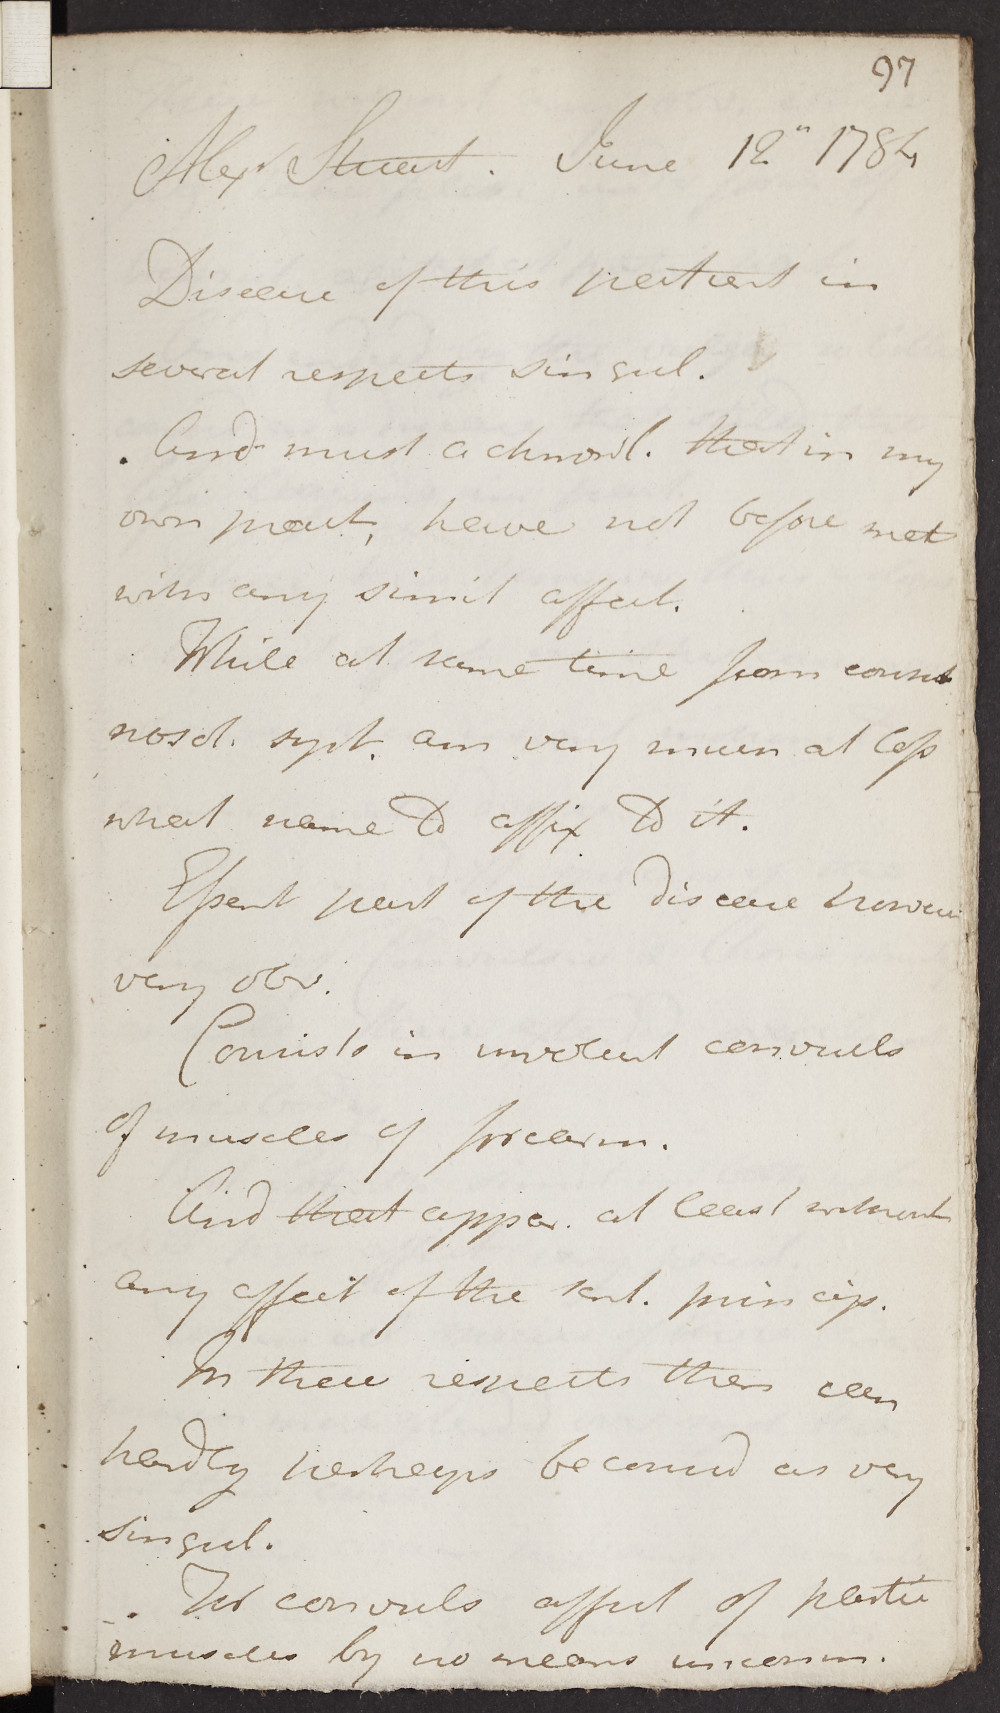 97
Alexr Stuart. June 12th 1784
Disease of this patient in
several respects singul.
And must acknowl. that in my
own pract, have not before met
with any simil affect.
While at same time from consid
nosol. syst. am very much at loss
what name to affix to it.
Essent part of the disease however
very obv.
Consists in involunt convuls
of muscles of forearm.
And that appar. at least without
any affect of the sent. princip.
In these respects then can
hardly perhaps be consid as very
singul.
For convuls affect of partic
muscles by no means uncomm.